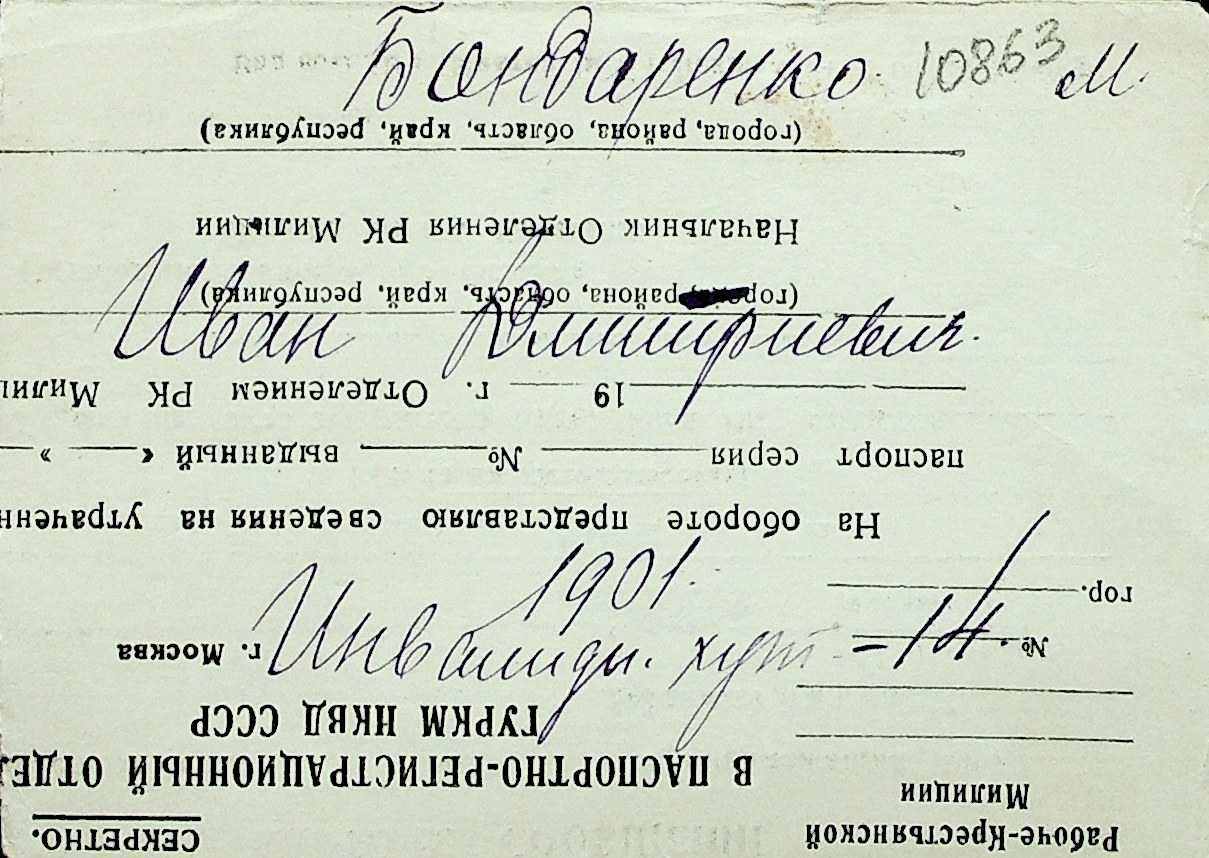 Бондаренко 10863 М
Иван Дмитриевич.
1901.
Инвалидн. хут - 14.
СЕКРЕТНО.
Рабоче-Крестьянской
Милиции
В ПАСПОРТНО-РЕГИСТРАЦИОННЫЙ ОТДЕЛ
ГУРКМ НКВД СССР
г. Москва
№
гор.
На обороте представляю сведения на утраченн
паспорт серия № выданный « »
19 г. Отделением РК Милиц
(города, района, область, край, республика)
Начальник Отделения РК Милиции
(города, района, область, край, республика)